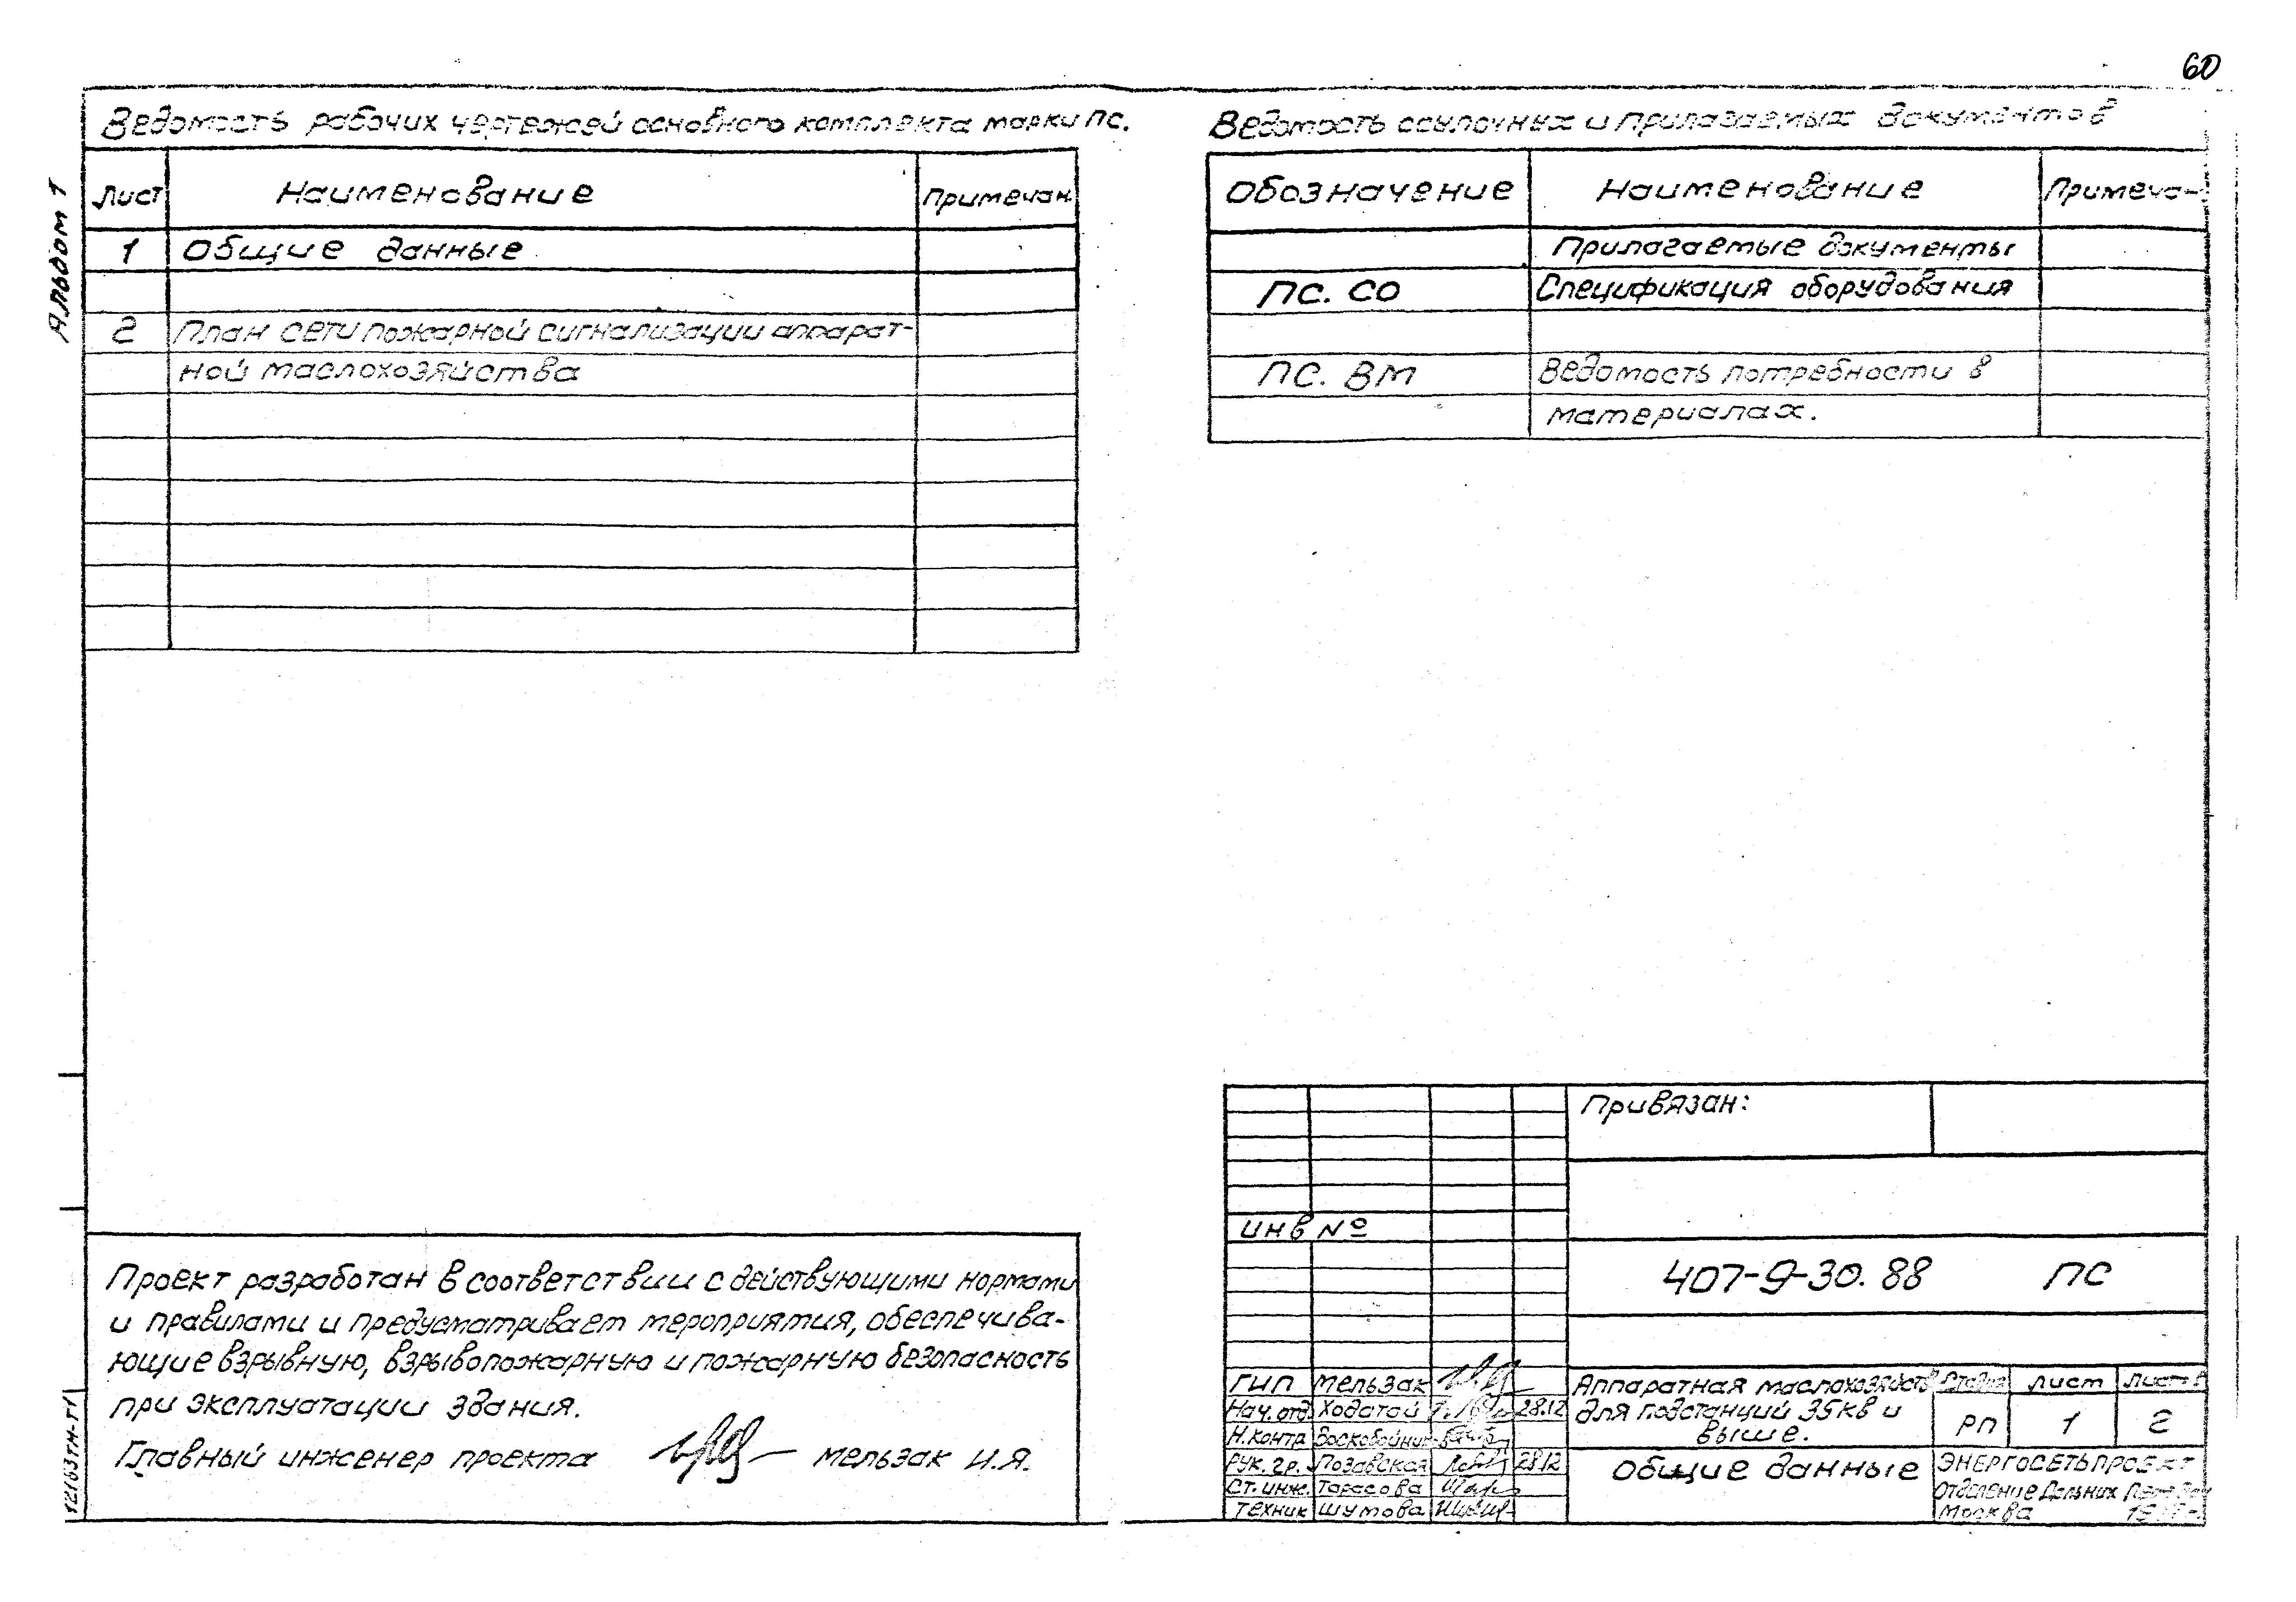 60
Альбом 1
Ведомость рабочих чертежей основного комплекта марки ПС.
Лист Наименование Примечан.
1 Общие данные
2 План сети пожарной сигнализации аппарат-
ной маслохозяйства
Ведомость ссылочных и прилагаемых документов
Обозначение Наименование Примеча-
Прилагаемые документы
ПС. СО Спецификация оборудования
ПС. ВМ Ведомость потребности в
материалах.
Проект разработан в соответствии с действующими нормами
и правилами и предусматривает мероприятия, обеспечива-
ющие взрывную, взрывопожарную и пожарную безопасность
при эксплуатации здания.
Главный инженер проекта Мельзак И.Я.
12163тм-т1
Привязан:
инв №
407-9-30.88 ПС
ГИП Мельзак
Нач. отд. Ходатай 28.12
Н. контр Воскобойник
Рук. гр. Лозавская 28.12
Ст. инж. Тарасова
Техник Шутова
Аппаратная маслохозяйств
для подстанций 35кв и
выше.
Стадия Лист Листов
РП 1 2
Общие данные
ЭНЕРГОСЕТЬПРОЕКТ
Отделение Дальних
Москва